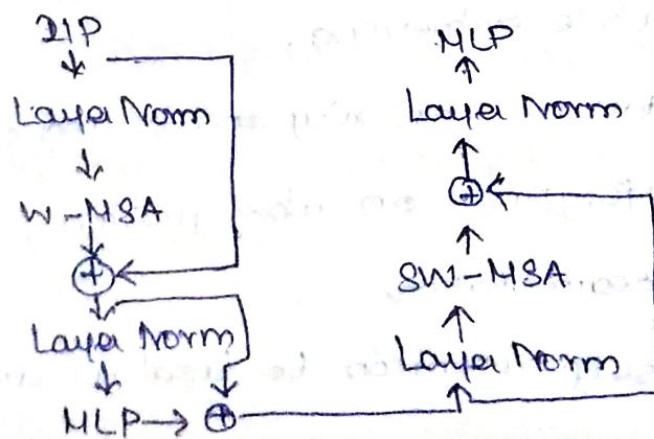 I/P
Layer Norm
W-MSA
Layer Norm
MLP
MLP
Layer Norm
SW-MSA
Layer Norm